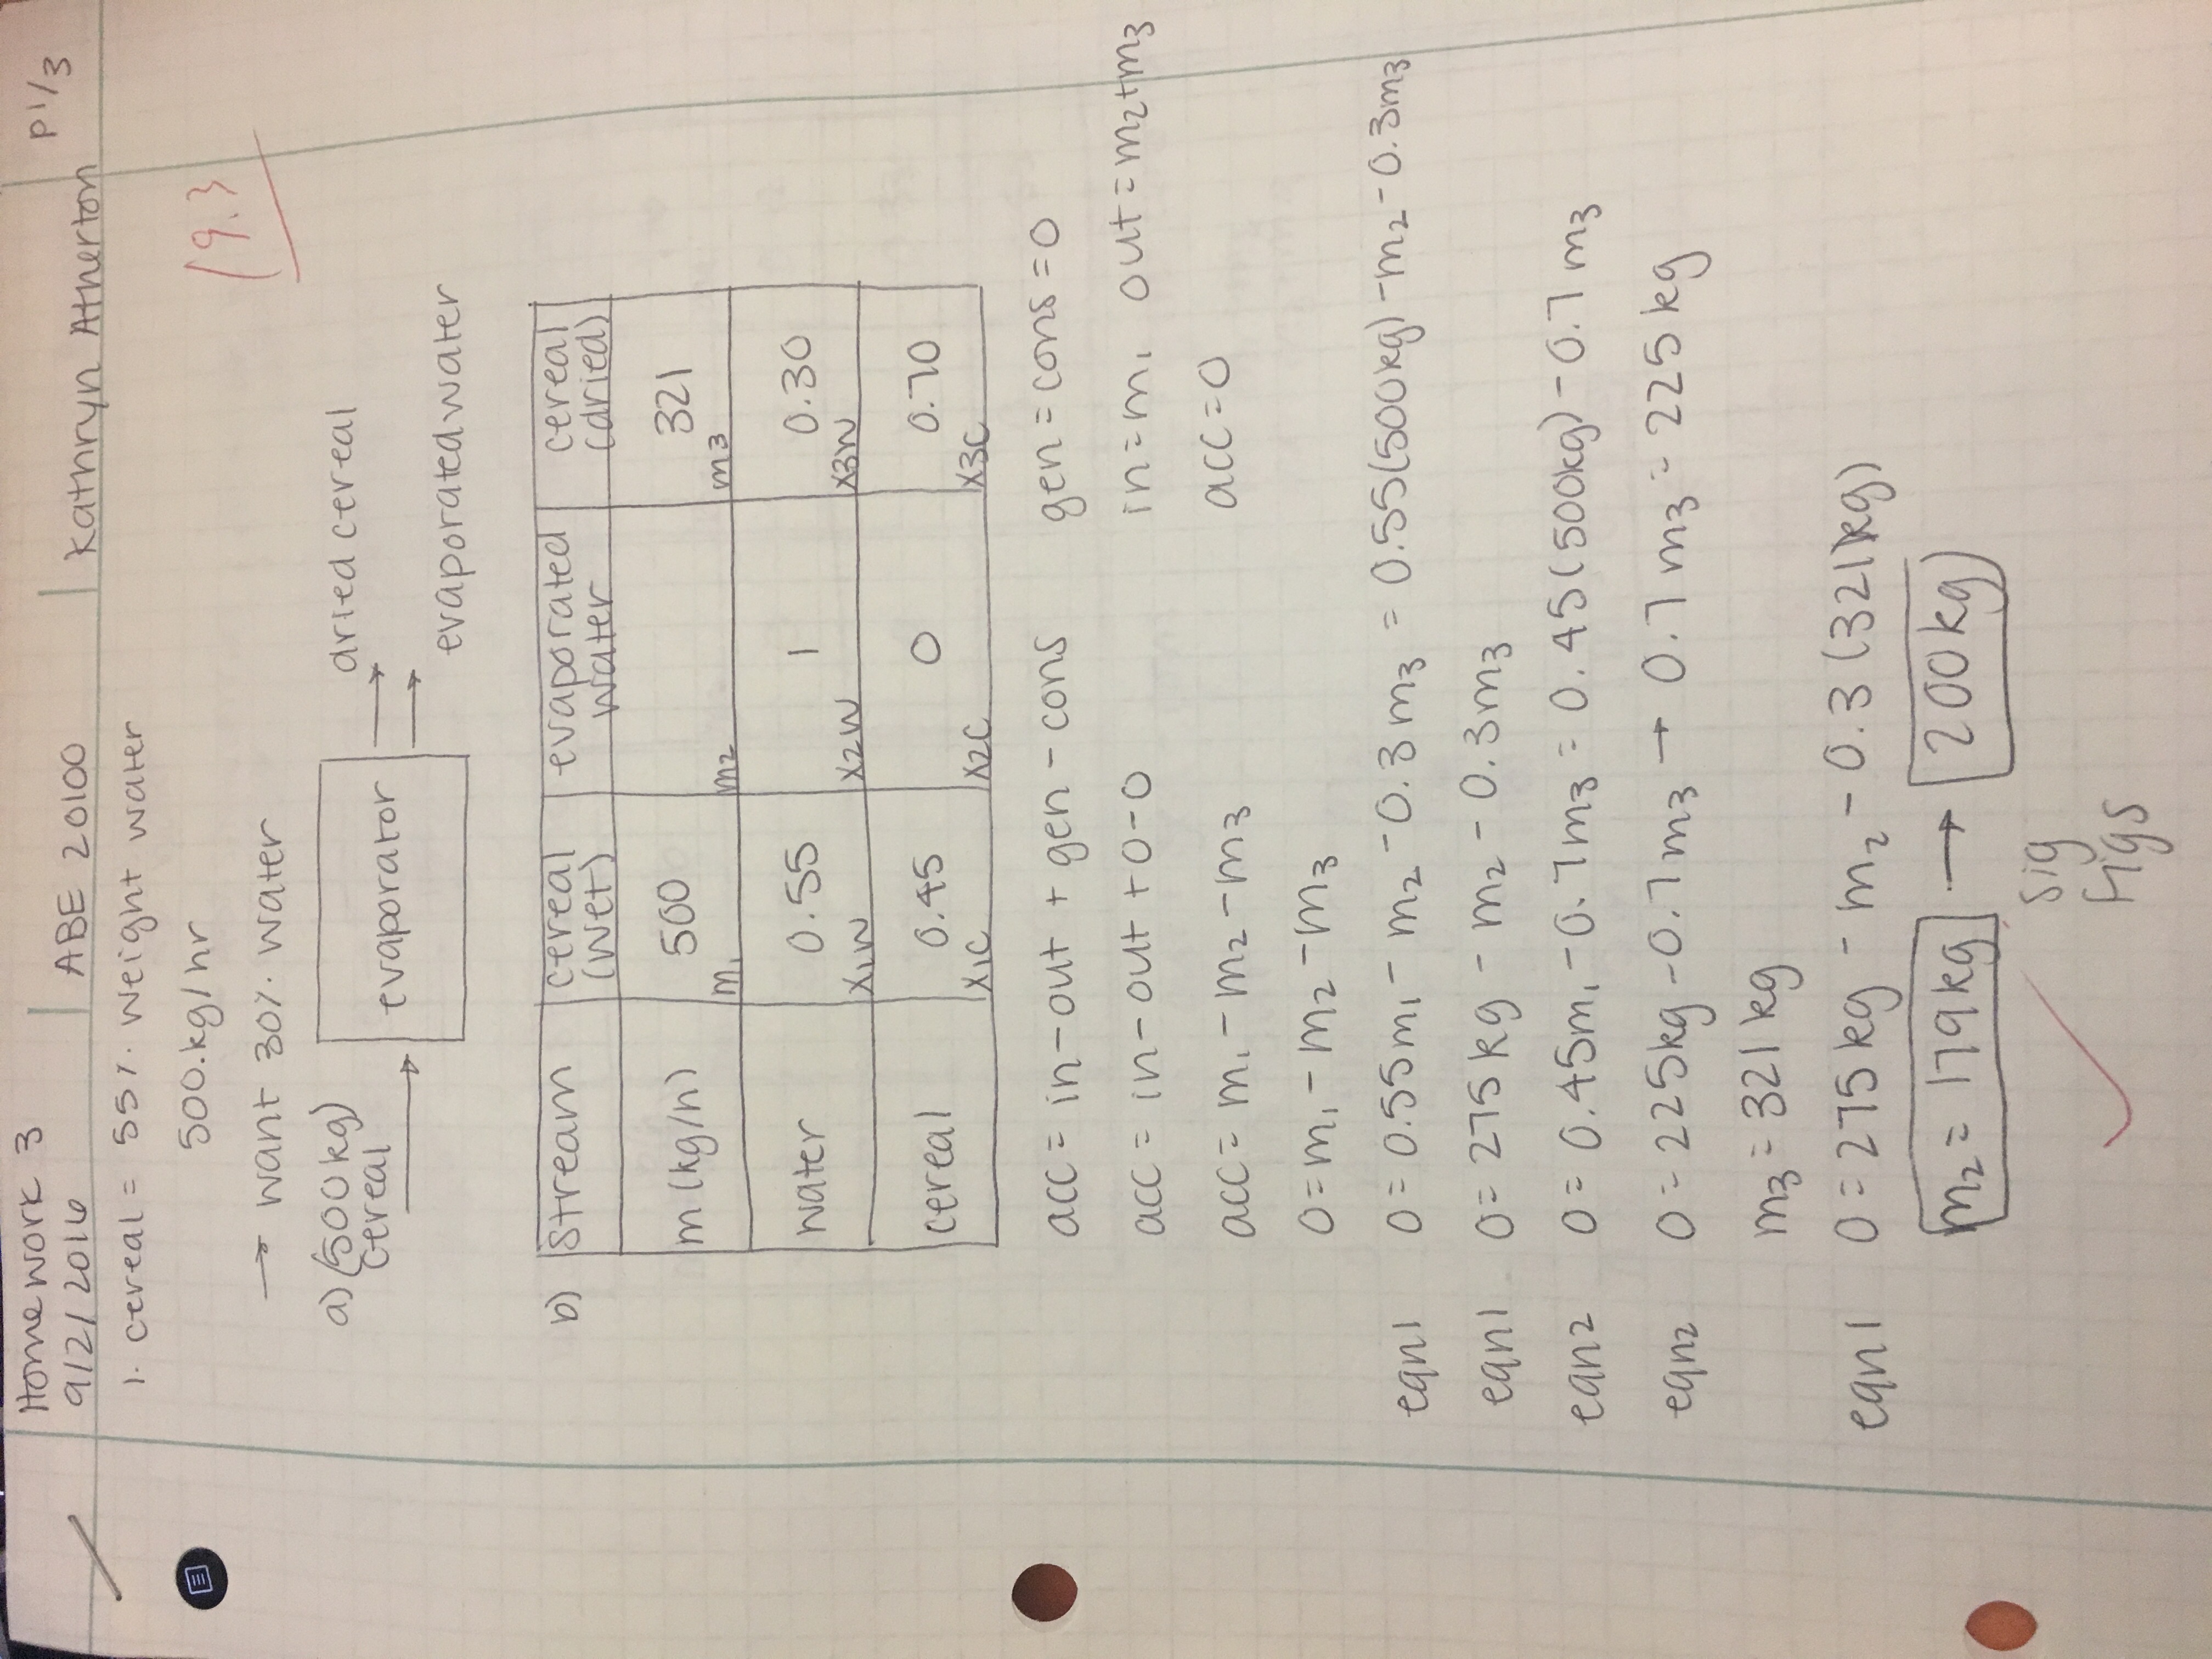 Homework 3
9/2/2016 ABE 20100 Kathryn Atherton P 1/3
1. cereal = 55% weight water
500. kg/hr
19.3
→ want 30% water
a) (500 kg) cereal → evaporator → dried cereal
→ evaporated water
b) stream | cereal (wet) | evaporated water | cereal (dried)
m (kg/h) | 500 m₁ | m₂ | 321 m₃
water | 0.55 x₁w | 1 x₂w | 0.30 x₃w
cereal | 0.45 x₁c | 0 x₂c | 0.70 x₃c
acc = in - out + gen - cons gen = cons = 0
acc = in - out + 0 - 0 in = m₁ out = m₂ + m₃
acc = m₁ - m₂ - m₃ acc = 0
0 = m₁ - m₂ - m₃
eqn1 0 = 0.55m₁ - m₂ - 0.3m₃ = 0.55(500kg) - m₂ - 0.3m₃
eqn1 0 = 275 kg - m₂ - 0.3m₃
eqn2 0 = 0.45m₁ - 0.7m₃ = 0.45(500kg) - 0.7m₃
eqn2 0 = 225kg - 0.7m₃ → 0.7m₃ = 225 kg
m₃ = 321 kg
eqn1 0 = 275 kg - m₂ - 0.3(321kg)
m₂ = 179 kg → 200 kg
sig
figs